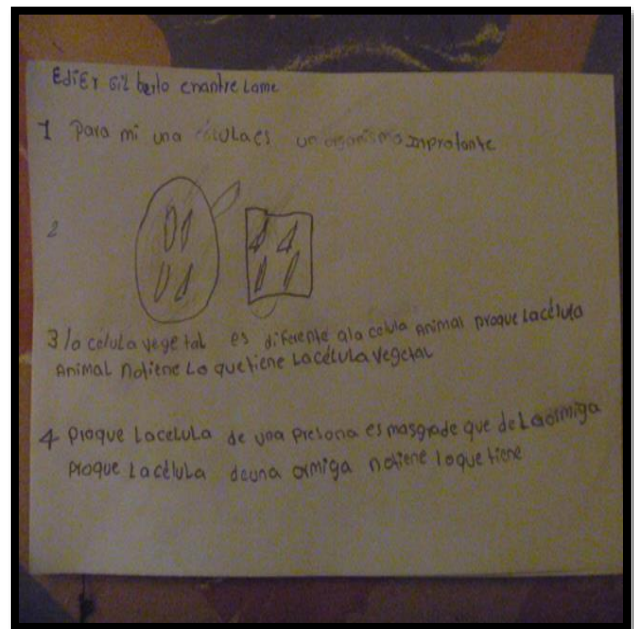 Edier Gilberto cnantre Lame
1 Para mi una célula es un organismo inprotante
2
3 la célula vegetal es diferente ala celula Animal proque La célula
Animal notiene Lo que tiene La célula vegetal
4 proque La celula de una presona es mas grade que de La ormiga
proque La célula de una ormiga notiene lo que tiene